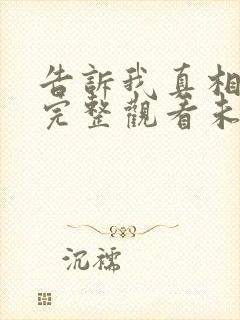 告訴我真相
完整觀看未
沉襦